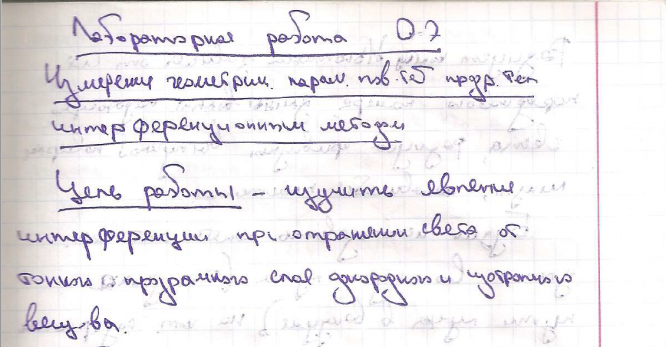 Лабораторная работа О-7
Измерение геометрич. парам. пов-тей прозр. тел
интерференционным методом
Цель работы – изучить явление
интерференции при отражении света от
тонкого прозрачного слоя однородного и изотропного
вещ-ва.